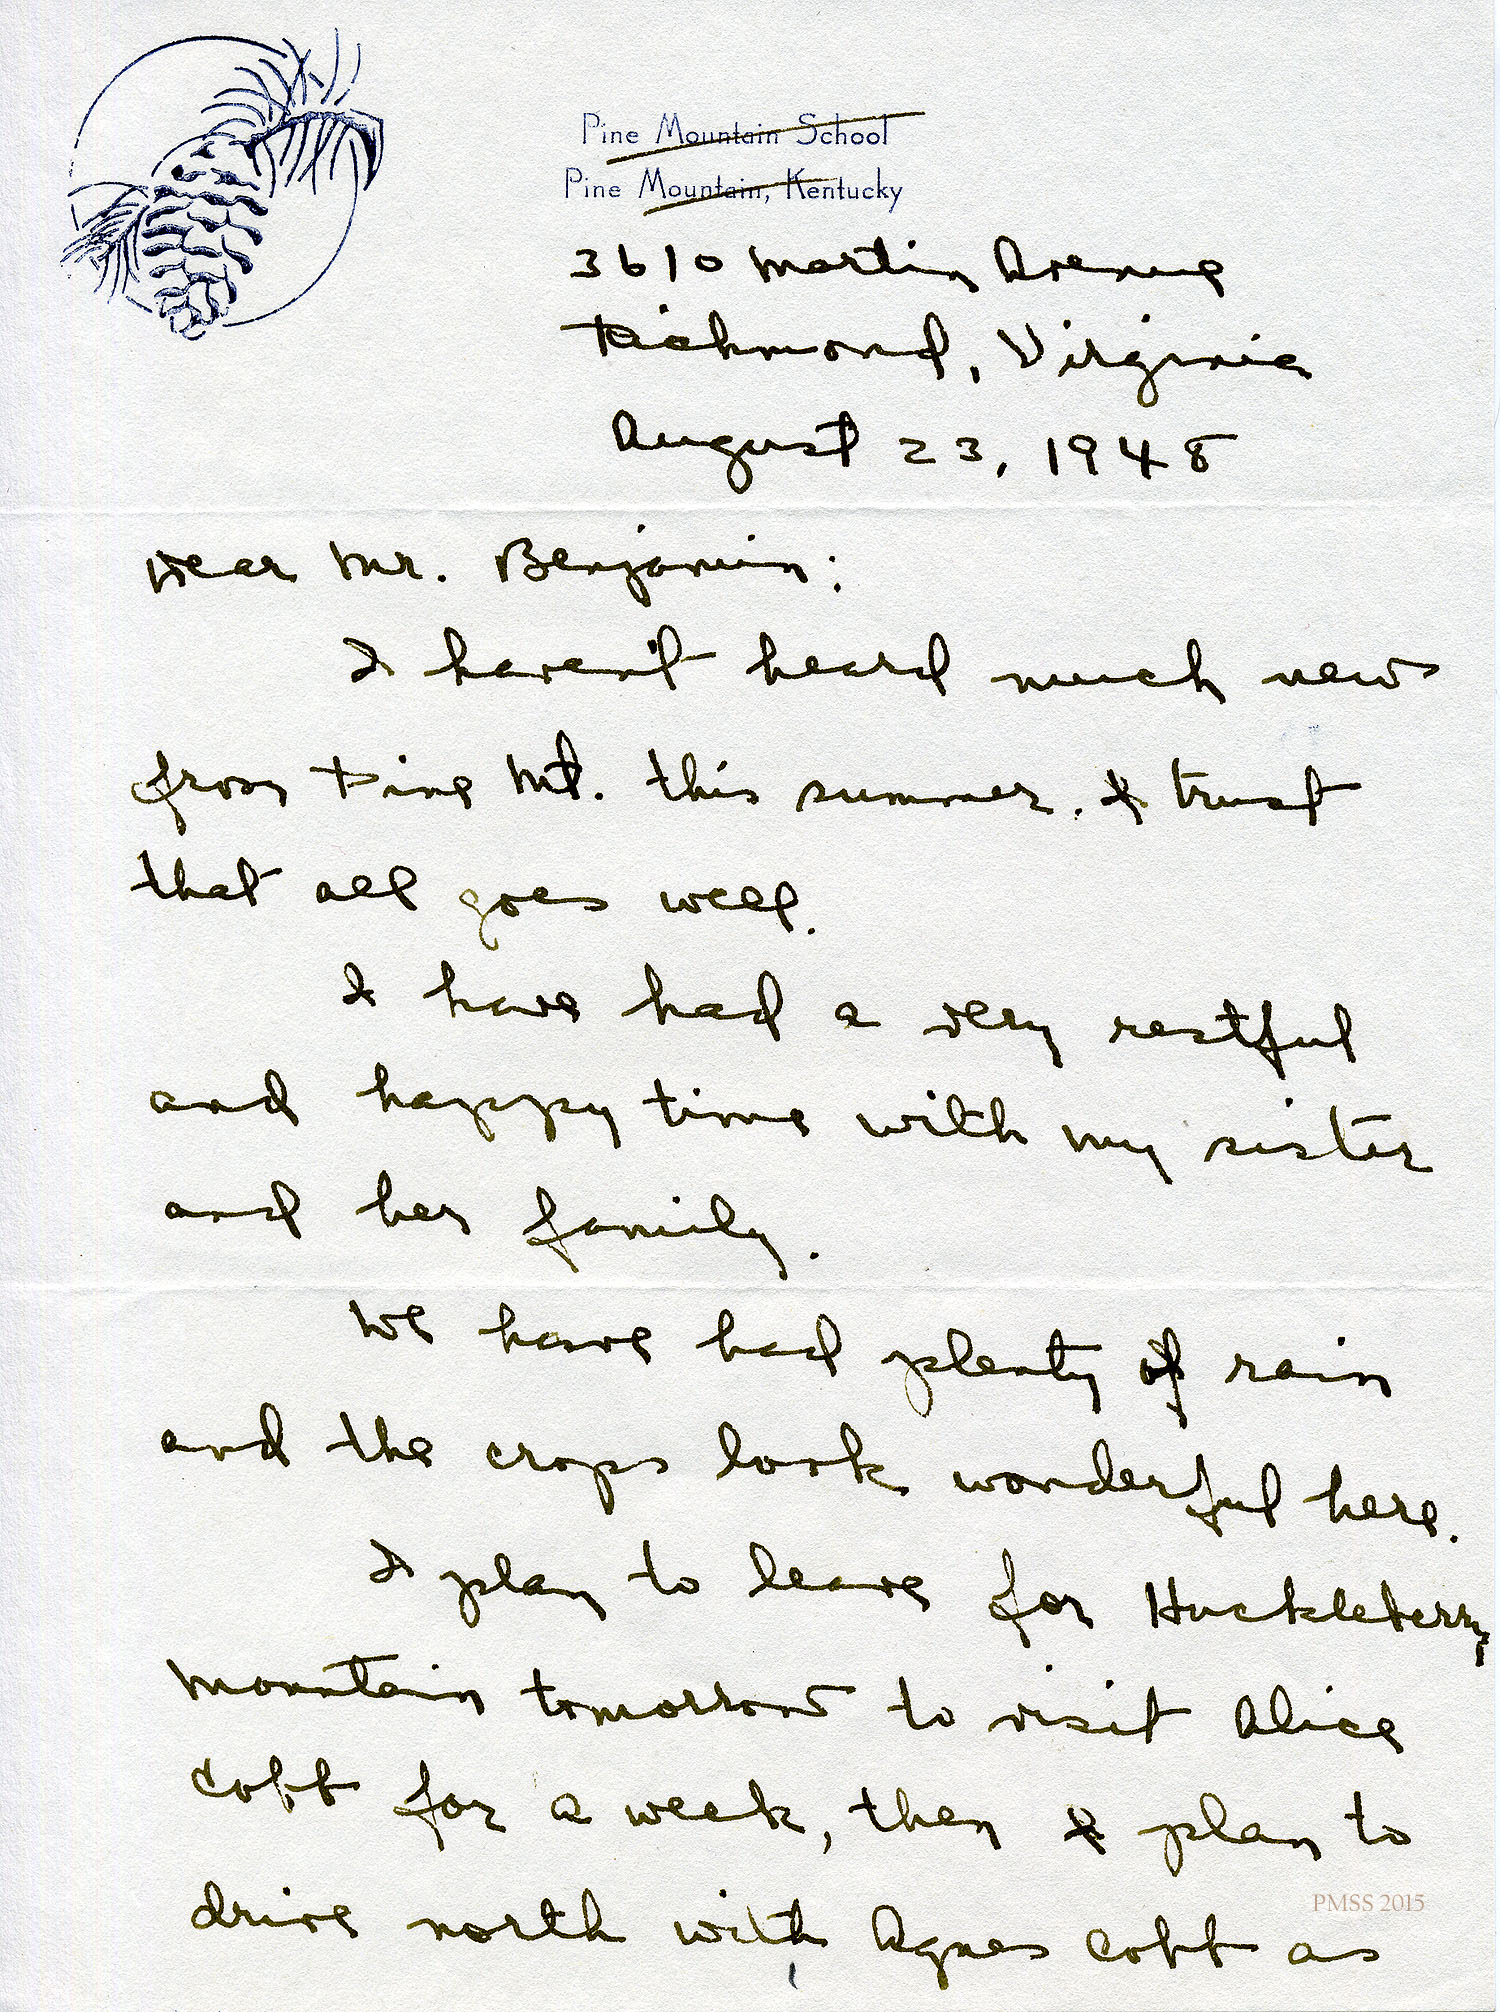 Pine Mountain School
Pine Mountain, Kentucky
3610 Martin Avenue
Richmond, Virginia
August 23, 1948
Dear Mr. Benjamin:
I haven't heard much news
from Pine Mt. this summer. I trust
that all goes well.
I have had a very restful
and happy time with my sister
and her family.
We have had plenty of rain
and the crops look wonderful here.
I plan to leave for Huckleberry
Mountain tomorrow to visit Alice
Cobb for a week, then I plan to
drive north with Agnes Cobb as
PMSS 2015